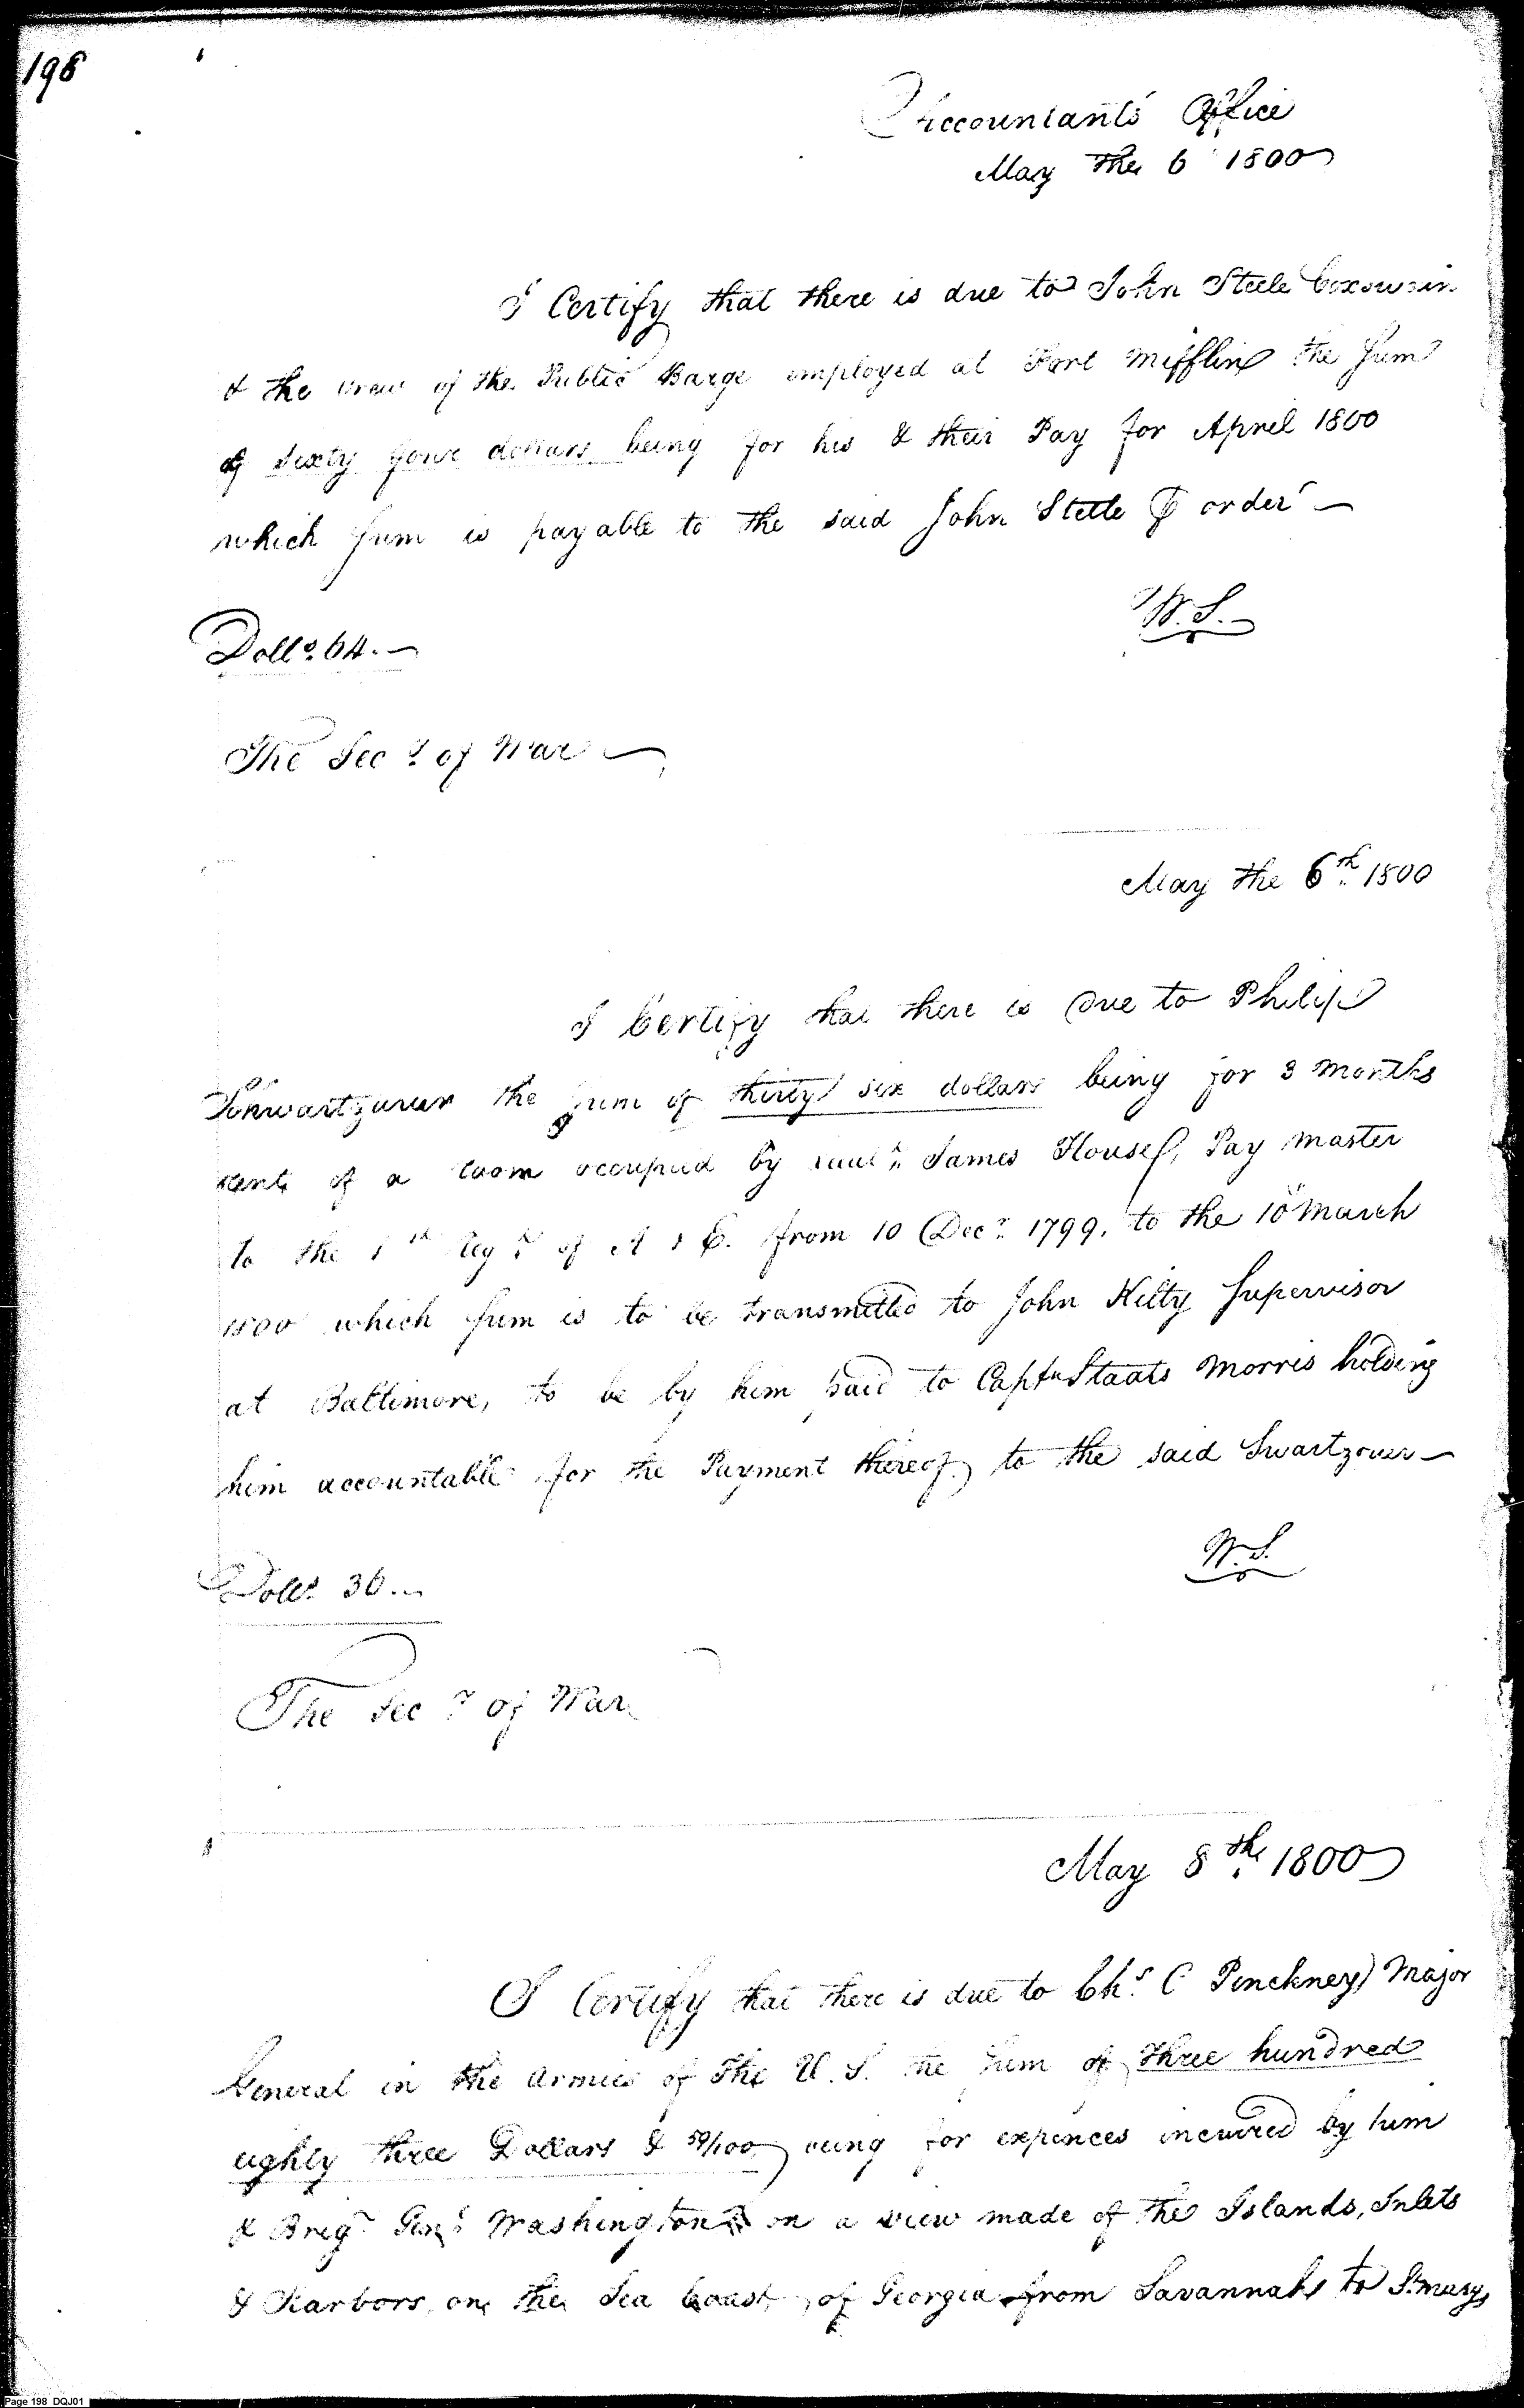 198
Accountants Office
May the 6 1800
I Certify that there is due to John Steele Coxswain
& the crew of the Public Barge employed at Fort Mifflin the Sum
of Sixty four dollars being for his & their Pay for April 1800
which Sum is payable to the said John Steele or order —
W.S.
Dolls. 64. —
The Secy of War —
May the 6th 1800
I Certify that there is Due to Philip
the Sum of thirty six dollars being for 3 Months
rent of a room occupied by James House, Pay Master
to the 1st Regt of A & E. from 10 Decr 1799, to the 10 March
1800 which Sum is to be transmitted to John Kilty Supervisor
at Baltimore, to be by him paid to Captn Staats Morris holding
him accountable for the Payment thereof to the said Swartzouer —
W.S.
Dolls. 36. —
The Secy of War
May 8th 1800
I Certify that there is due to Chs C Pinckney Major
General in the Armies of the U.S. the Sum of three hundred
eighty three Dollars & 50/100 being for expences incurred by him
& Brigr Genl Washington on a view made of the Islands, Inlets
& Harbors on the Sea Coast of Georgia from Savannah to St marys
Page 198 DQJ01